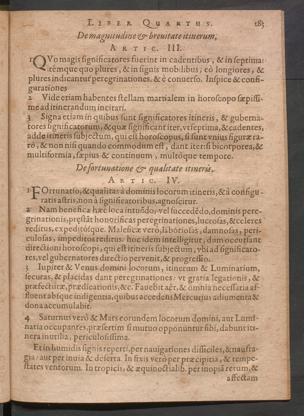 LIBER QUARTUS. 285
De magnitudine & brevitate itinerum.
ARTIC. III.
1 QVo magis significatores fuerint in cadentibus, & in septima:
itémque quo plures, & in signis mobilibus, eò longiores, &
plures indicantur peregrinationes, & è converso. Inspice & confi-
gurationes
2 Vide etiam habentes stellam martialem in horoscopo sæpissi-
mè ad itinerandum incitari.
3 Signa etiam in quibus sunt significatores itineris, & guberna-
tores significatorum, & quæ significant iter, vt septima, & cadentes,
adde itineris subjectum, qui est horoscopus, si sunt vnius figuræ ra-
rò, & non nisi quando commodum est, dant iter: si bicorporea, &
multiformia, sæpius & continuum, multóque tempore.
De fortunatione & qualitate itineris.
ARTIC. IV.
1 FOrtunatio, & qualitas à dominis locorum itineris, & à configu-
ratis astris, non à significatoribus, agnoscitur.
2 Nam benefica hæc loca intuendo, vel succedédo, dominis pere-
grinationis, præstât honorificas peregrinationes, lucrosas, & celeres
reditus, ex peditósque. Maleficæ verò, laboriosas, damnosas, peri-
culosas, impeditos reditus: hoc idem intelligitur, dum occursant
directioni horoscopi, qui est itineris subjectum, vbi ad significato-
res, vel gubernatores directio pervenit, & progressio.
3 Iupiter & Venus domini locorum, itinerum & Luminarium,
securas, & placidas dant peregrinationes: vt gratia legationis, &
præfecturæ, prædicationis, &c. Favebit aër, & omnia necessitia af-
fluent absque indigentia, quibus accedens Mercurius adiumenta &
dona accumulabit.
4 Saturnus verò & Mars eorundem locorum domini, aut Lumi-
naria occupantes, præsertim si mutuo opponuntur sibi, dabunt iti-
nera inutilia, periculosissima.
Et in humidis signis reperti, per navigationes difficiles, & naufra-
gia: aut per invia & deserta. In fixis verò per præcipitia, & tempe-
states ventorum. In tropicis, & æquinoctialib. per inopiã rerum, &
affectam